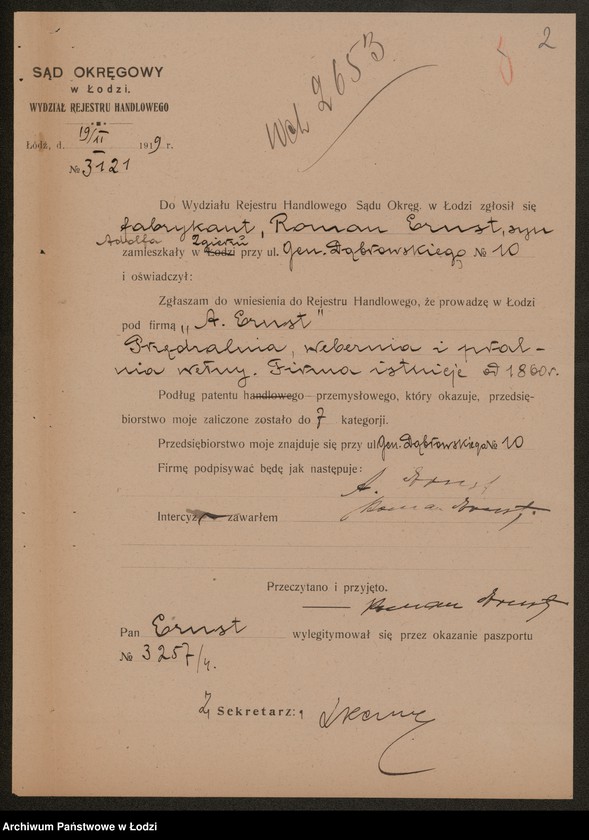 2
SĄD OKRĘGOWY
w Łodzi.
WYDZIAŁ REJESTRU HANDLOWEGO
Łódź, d. 19/II 1919 r.
№ 3121
2653
Do Wydziału Rejestru Handlowego Sądu Okręg. w Łodzi zgłosił się
fabrykant, Roman Ernst, syn
Adolfa Zgierzu
zamieszkały w Łodzi przy ul. Gen. Dąbrowskiego № 10
i oświadczył:
Zgłaszam do wniesienia do Rejestru Handlowego, że prowadzę w Łodzi
pod firmą „A. Ernst"
Przędzalnia, webernia i pral-
nia wełny. Firma istnieje od 1860 r.
Podług patentu handlowego-przemysłowego, który okazuje, przedsię-
biorstwo moje zaliczone zostało do 7 kategorji.
Przedsiębiorstwo moje znajduje się przy ul. Gen. Dąbrowskiego № 10
Firmę podpisywać będę jak następuje:
A. Ernst
Roman Ernst
Intercyzy zawarłem
Przeczytano i przyjęto.
Roman Ernst
Pan Ernst wylegitymował się przez okazanie paszportu
№ 3257/4.
Z Sekretarz:
Archiwum Państwowe w Łodzi